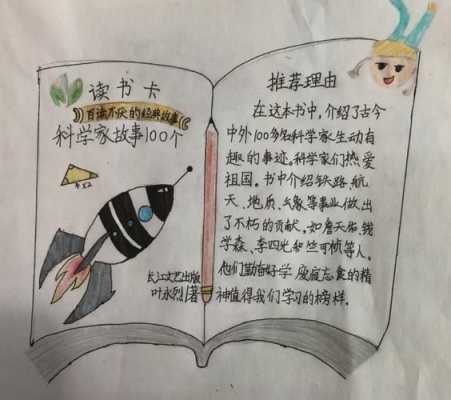 读书卡
百读不厌的经典故事
科学家故事100个
长江文艺出版
叶永烈著
推荐理由
在这本书中，介绍了古今
中外100多名科学家生动有
趣的事迹。科学家们热爱
祖国。书中介绍铁路、航
天、地质、气象等事业做出
了不朽的贡献。如詹天佑、钱
学森、李四光和竺可桢等人。
他们勤奋好学 废寝忘食的精
神值得我们学习的榜样。